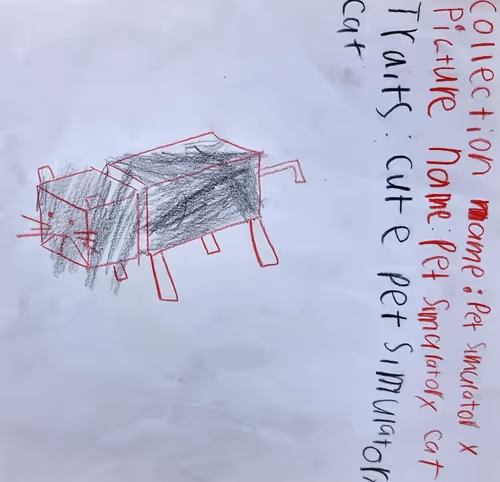 Collection name: Pet Simulator x
Picture name: Pet Simulator x cat
Traits: cute pet simulator
cat